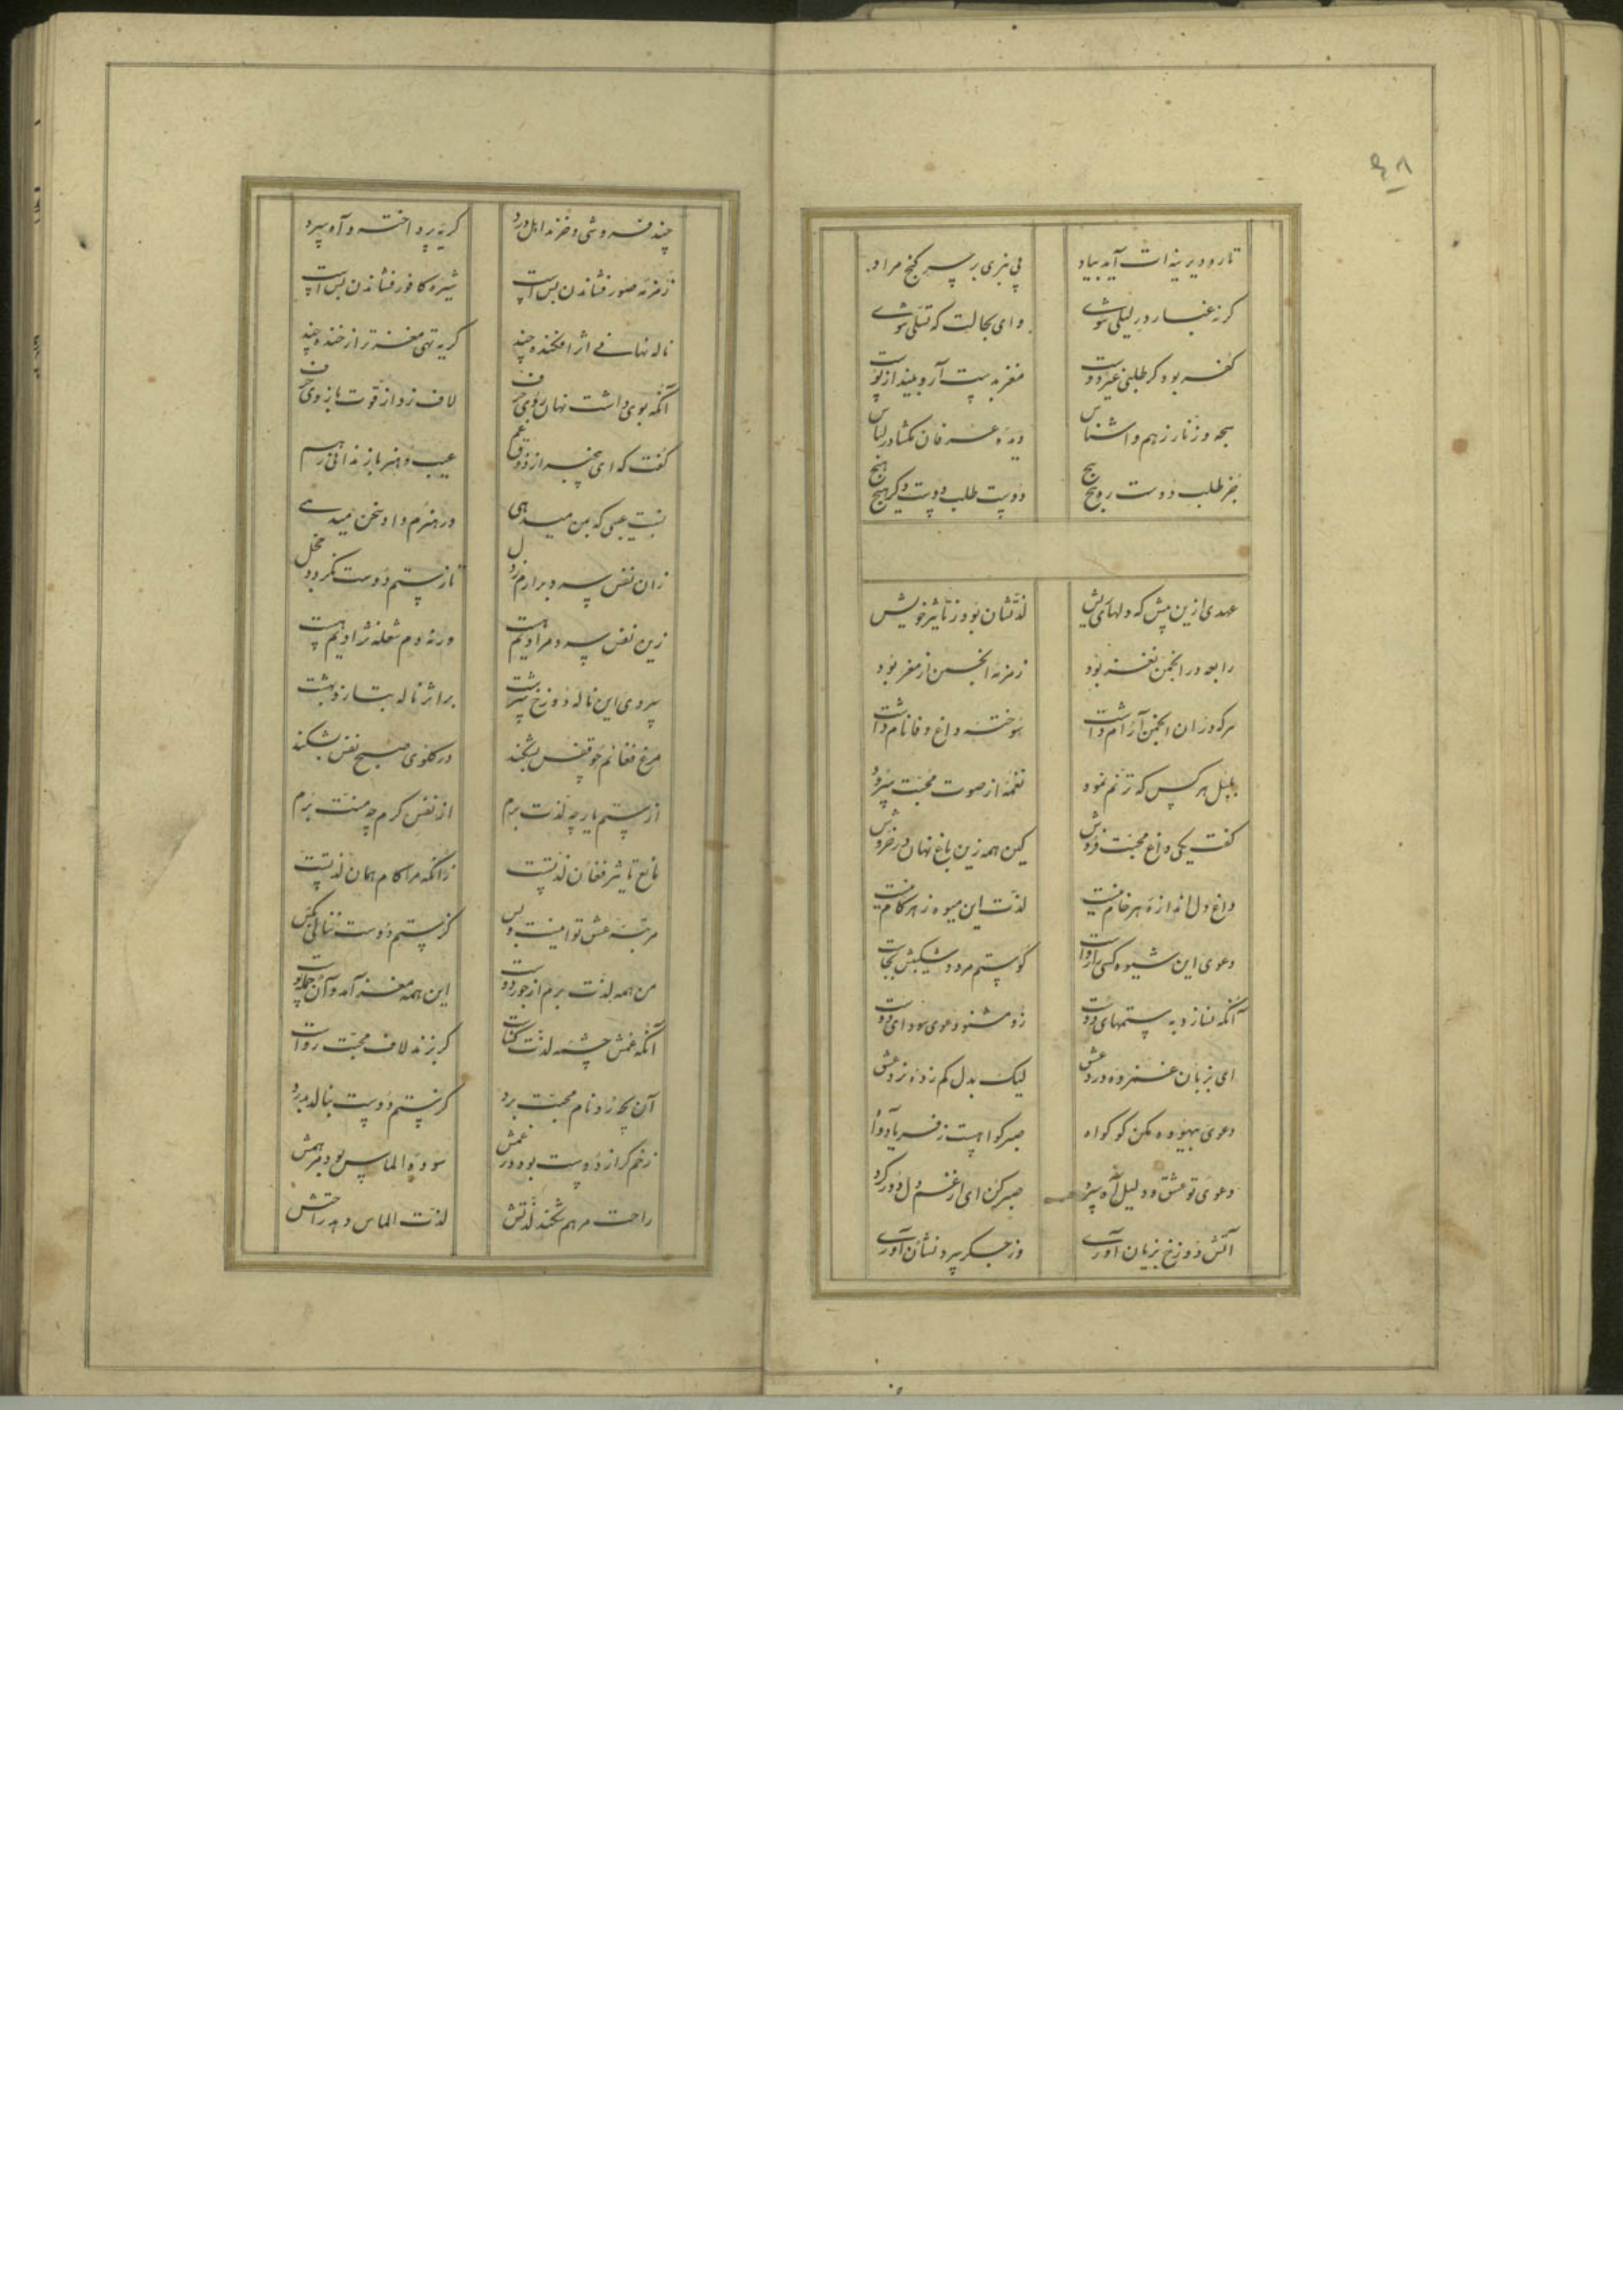 ۴۸
تا رود دیرینه ات آید بیاد پی نبری بر سر گنج مراد
گر ز غبار در لیلی شوی وای بحالت که تسلی شوی
کفر بود گر طلبی غیر دوست مغز بدست آر و بیند از پوست
سبحه و زنار ز هم واشناس دیده عرفان بگشا در لباس
جز طلب دوست روهیج هیج دوست طلب دوست دگر هیج هیج
عهدی ازین پیش که دلهای ریش لذتشان بود ز تاثیر خویش
رابعه در انجمن نغز بود زمزمه انجمن از مغز بود
هر که در ان انجمن آرام داشت سوخته داغ وفا نام داشت
بلبل هر کس که ترنم نمود نغمه از صوت محبت سرود
گفت یکی داغ محبت فروش کین همه زین باغ نهان در خروش
داغ دل اندازه هر خام نیست لذت این میوه ز هر کام نیست
دعوی این شیوه کسی را رواست کو ستم مردد شکیبش بجاست
آنکه نسازد به ستمهای دوست زو مشنو دعوی سودای دوست
ای بزبان غمزده درد عشق لیک بدل کم زده نرد عشق
دعوی بیهوده مکن کو گواه صبر گواهست ز فریاد و آه
دعوی تو عشق و دلیل آه سرد صبر کن ای از غم دل دور کرد
آتش دوزخ بزبان آوری وز جگر سرد نشان آوری
چند فروشی و خرند اهل درد گریه پرداخته و آه سرد
زمزمه صور فشاندن بس است شیره کافور فشاندن بس است
ناله نهانی اثر افکنده چند گریه تهی مغزتر از خنده چند
آنکه بوی داشت نهان روی حرف لاف زد از قوت بازوی حرف
گفت که ای بیخبر از ذوق غم عیب و هنر باز ندانی ز هم
نسبت عیبی که بمن میدهی در هنرم داد سخن میدهی
زان نفس سرد برارم ز دل تا ز ستم دوست نگردد خجل
زین نفس سرد مرادیم هست ورنه دم شعله نژادیم هست
پیروی این ناله دوزخ سرشت بر اثر ناله بتازد بهشت
مرغ فغانم چو قفس بشکند در گلوی صبح نفس بشکند
از ستم یار چه لذت برم از نفس گرم چه منت برم
مانع تاثیر فغان لذتست زانکه مرا کام همان لذتست
مرتبه عشق تو اینست و بس کز ستم دوست ننالی بکس
من همه لذت برم از جور دوست این همه مغز آمد و آن جمله پوست
آنکه غمش چشمه لذت گشاست گر بزند لاف محبت رواست
آن بچه زاد نام محبت برد کز ستم دوست بنالد بدرد
زخم گر از دوست بود در غمش سوده الماس بود مرهمش
راحت مرهم شکند لذتش لذت الماس دهد راحتش